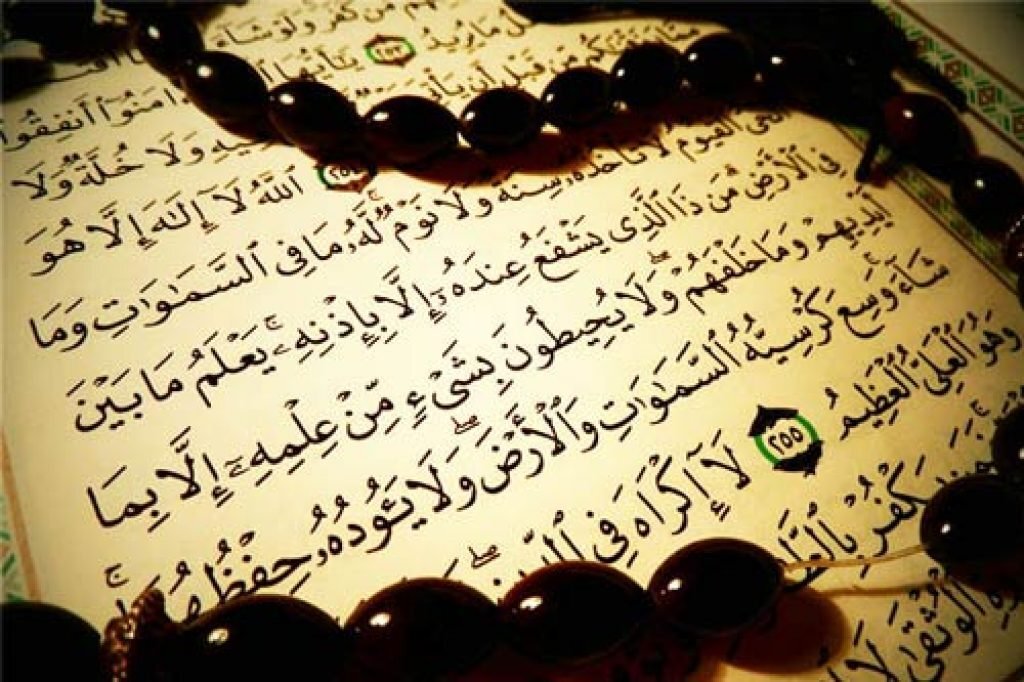 مَّن كَفَرَ وَلَوْ شَآءَ
مَا يُرِيدُ ٢٥٣ يَٰٓأَيُّهَا ءَامَنُوٓا۟ أَنفِقُوا۟
مِّن قَبْلِ أَن وَلَا خُلَّةٌ وَلَا
٢٥٤ ٱللَّهُ لَآ إِلَٰهَ إِلَّا هُوَ
ٱلْقَيُّومُ لَا تَأْخُذُهُۥ سِنَةٌ وَلَا نَوْمٌ لَّهُۥ مَا فِى ٱلسَّمَٰوَٰتِ وَمَا
فِى ٱلْأَرْضِ مَن ذَا ٱلَّذِى يَشْفَعُ عِندَهُۥٓ إِلَّا بِإِذْنِهِۦ ۚ يَعْلَمُ مَا بَيْنَ
أَيْدِيهِمْ وَمَا خَلْفَهُمْ ۖ وَلَا يُحِيطُونَ بِشَىْءٍ مِّنْ عِلْمِهِۦٓ إِلَّا بِمَا
شَآءَ ۚ وَسِعَ كُرْسِيُّهُ ٱلسَّمَٰوَٰتِ وَٱلْأَرْضَ ۖ وَلَا يَـُٔودُهُۥ حِفْظُهُمَا ۚ
وَهُوَ ٱلْعَلِىُّ ٱلْعَظِيمُ ٢٥٥ لَآ إِكْرَاهَ فِى
يَكْفُرْ
ٱلْوُثْقَىٰ لَا